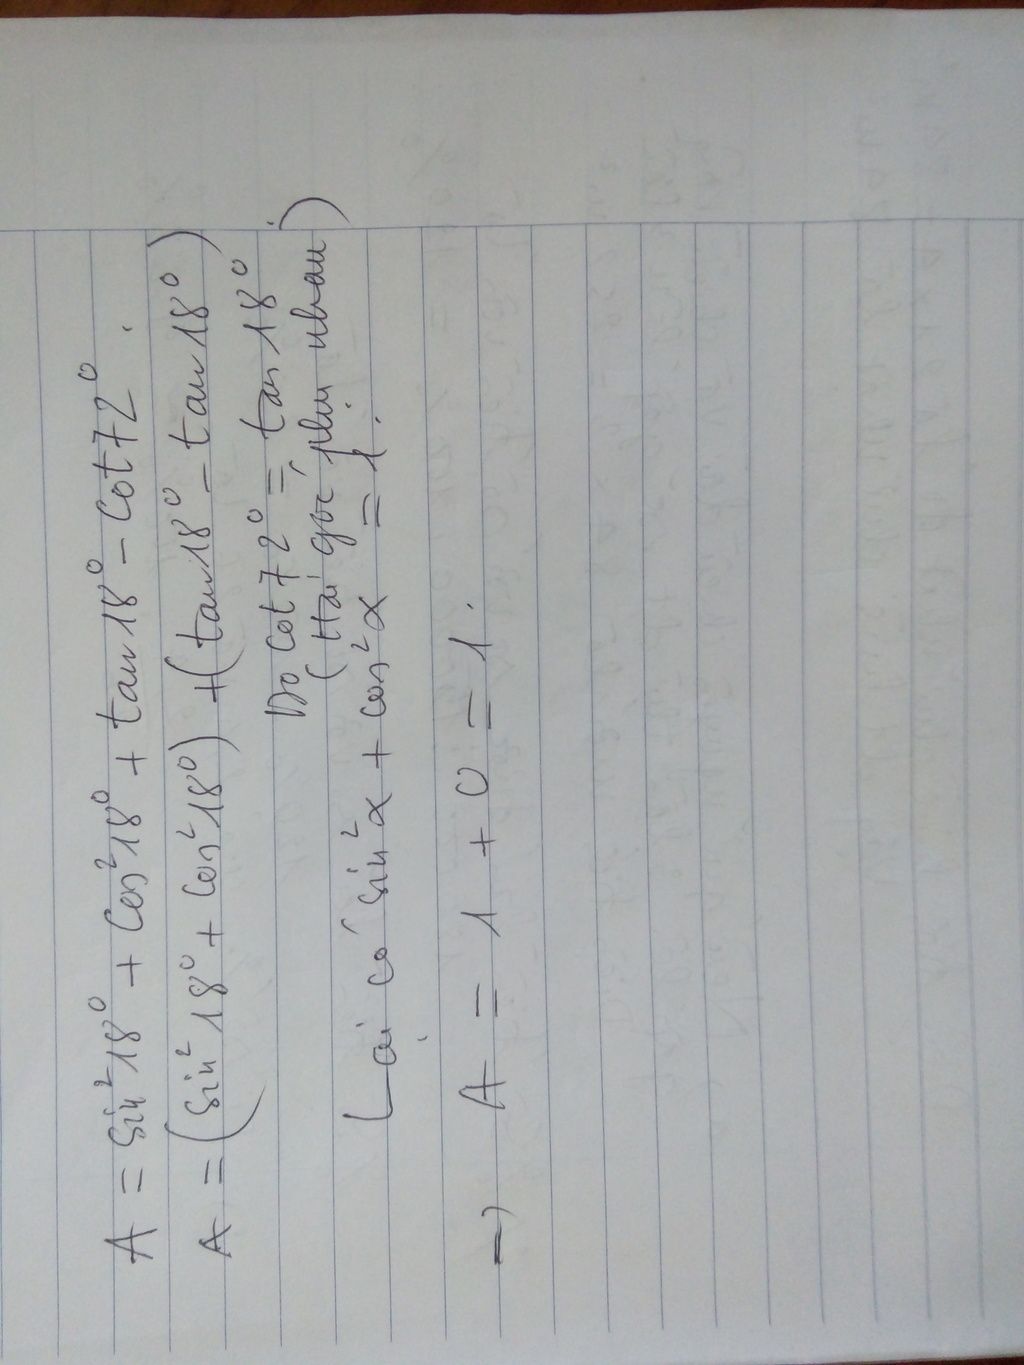 A = sin²18⁰ + cos²18⁰ + tan18⁰ - cot72⁰.
A = (sin²18⁰ + cos²18⁰) + (tan18⁰ - tan18⁰)
Do cot72⁰ = tan18⁰
(Hai góc phụ nhau)
Lại có sin²α + cos²α = 1.
⇒ A = 1 + 0 = 1.